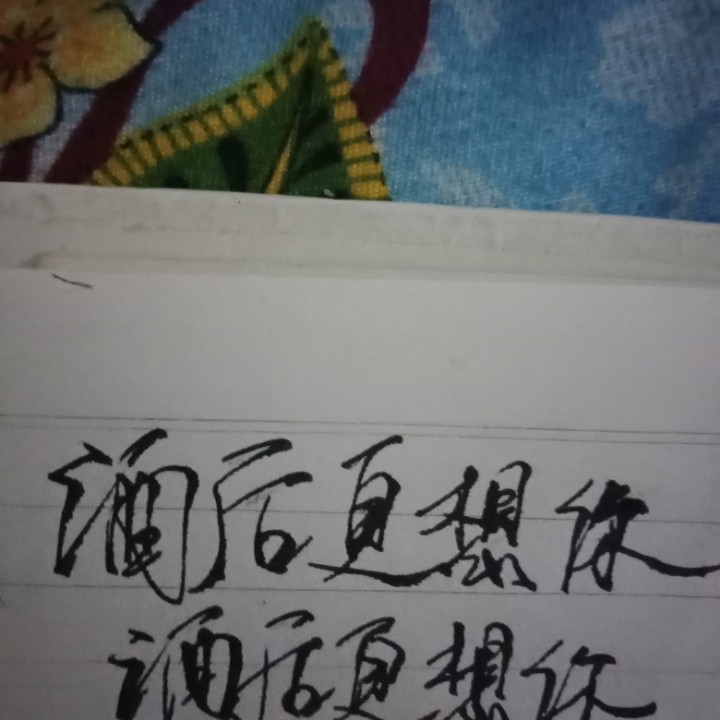 酒后更想你
酒后更想你